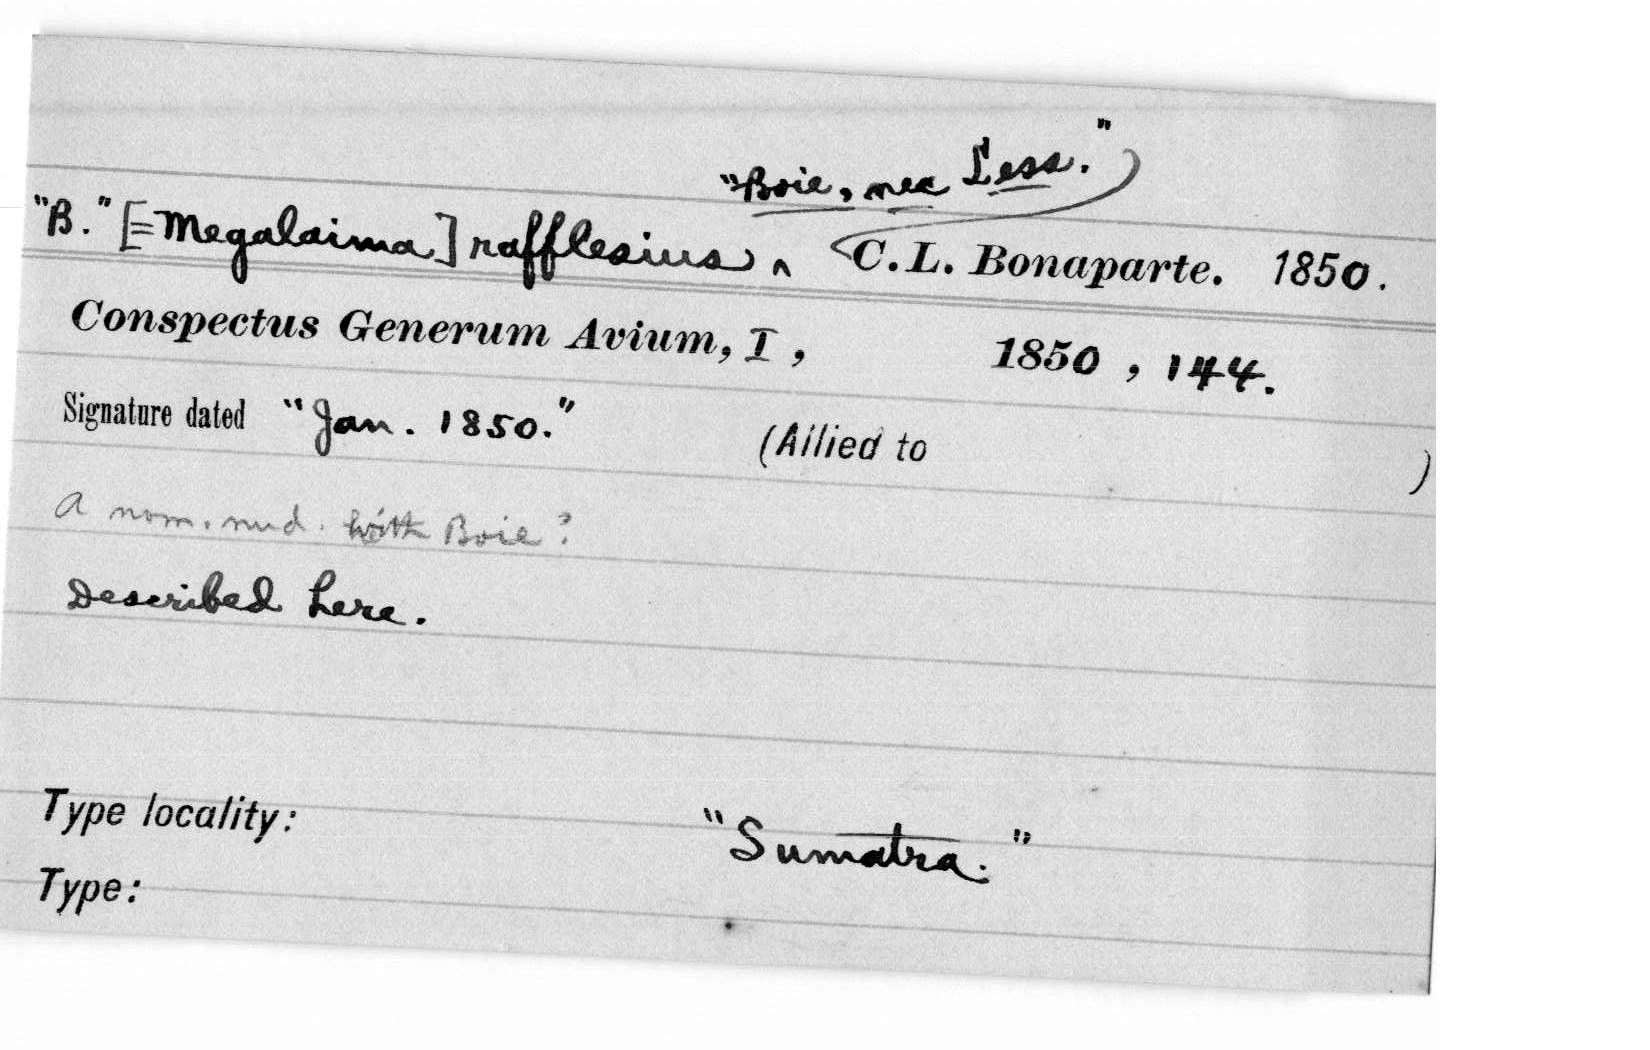 "Boie, nec Less."
"B." [=Megalaima] rafflesius ^ C.L. Bonaparte. 1850.
Conspectus Generum Avium, I, 1850, 144.
Signature dated "Jan. 1850." (Allied to )
A nom. nud. with Boie?
Described here.
Type locality: "Sumatra."
Type: